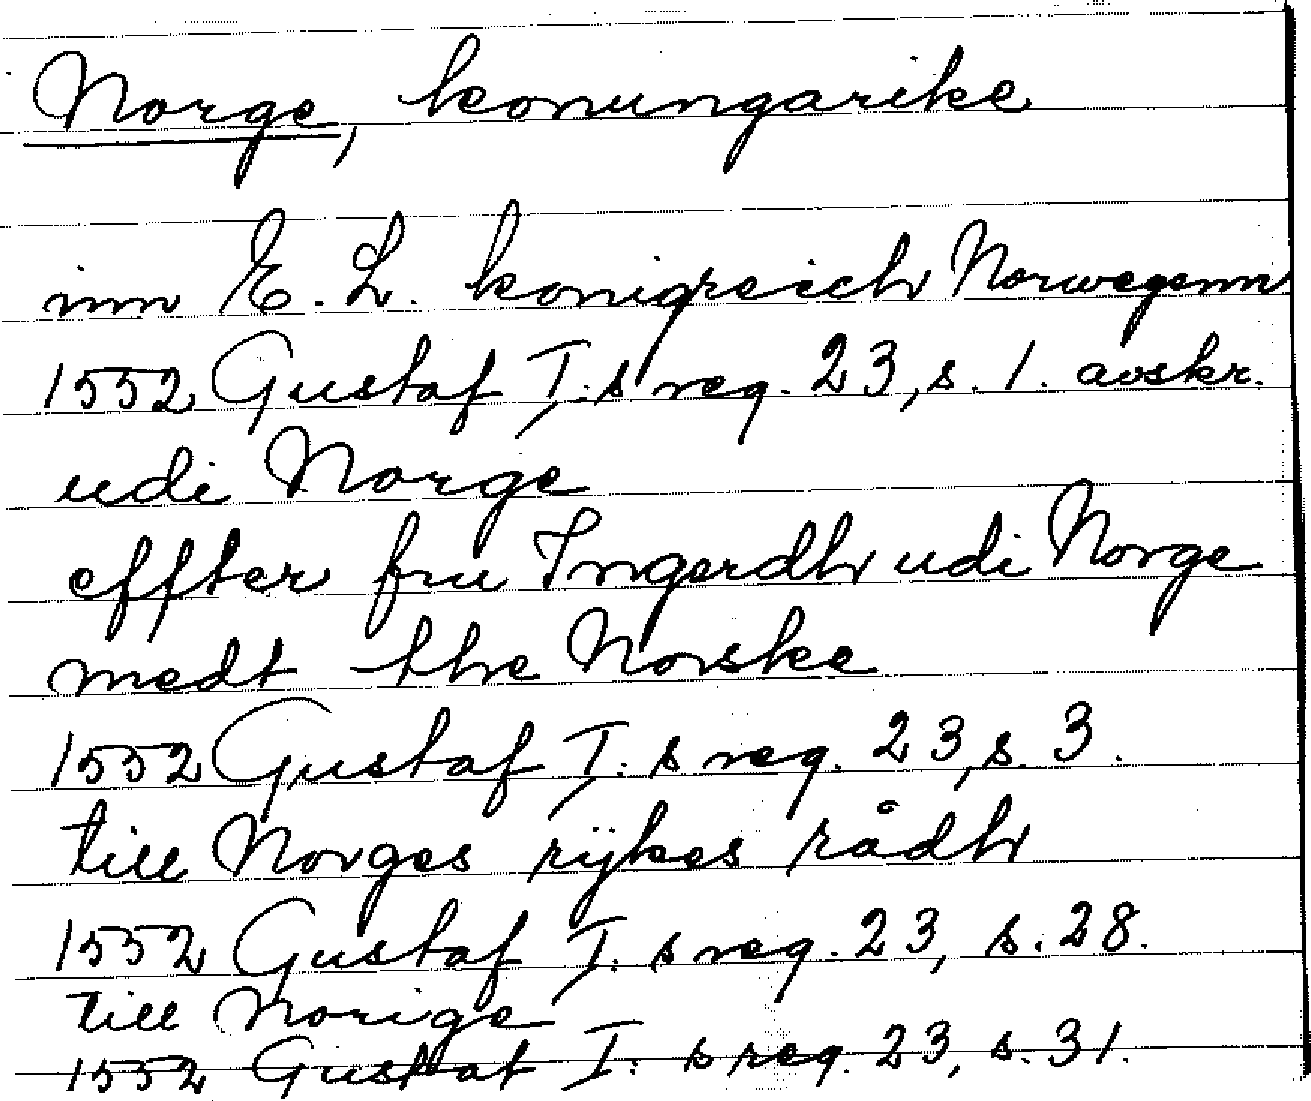 Norge, konungarike
inn E. L. konigreich Norwegenn
1552 Gustaf I:s reg. 23, s. 1. avskr.
udi Norge
effter fru Ingerdh udi Norge
medt the Norske
1552 Gustaf I:s reg. 23, s. 3.
till Norges rijkes rådh
1552 Gustaf I:s reg. 23, s. 28.
till Norige
1552 Gustaf I:s reg. 23, s. 31.